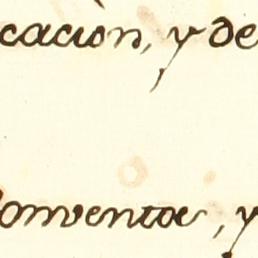 cacion, y de
Conventos, y